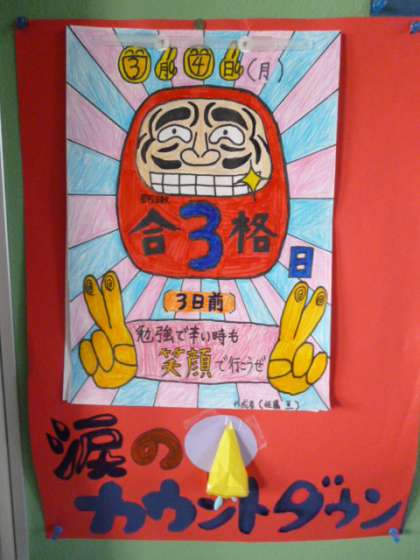 3月4日(月)
合3格
日
3日前
勉強で辛い時も
笑顔で行こうぜ
涙の
カウントダウン